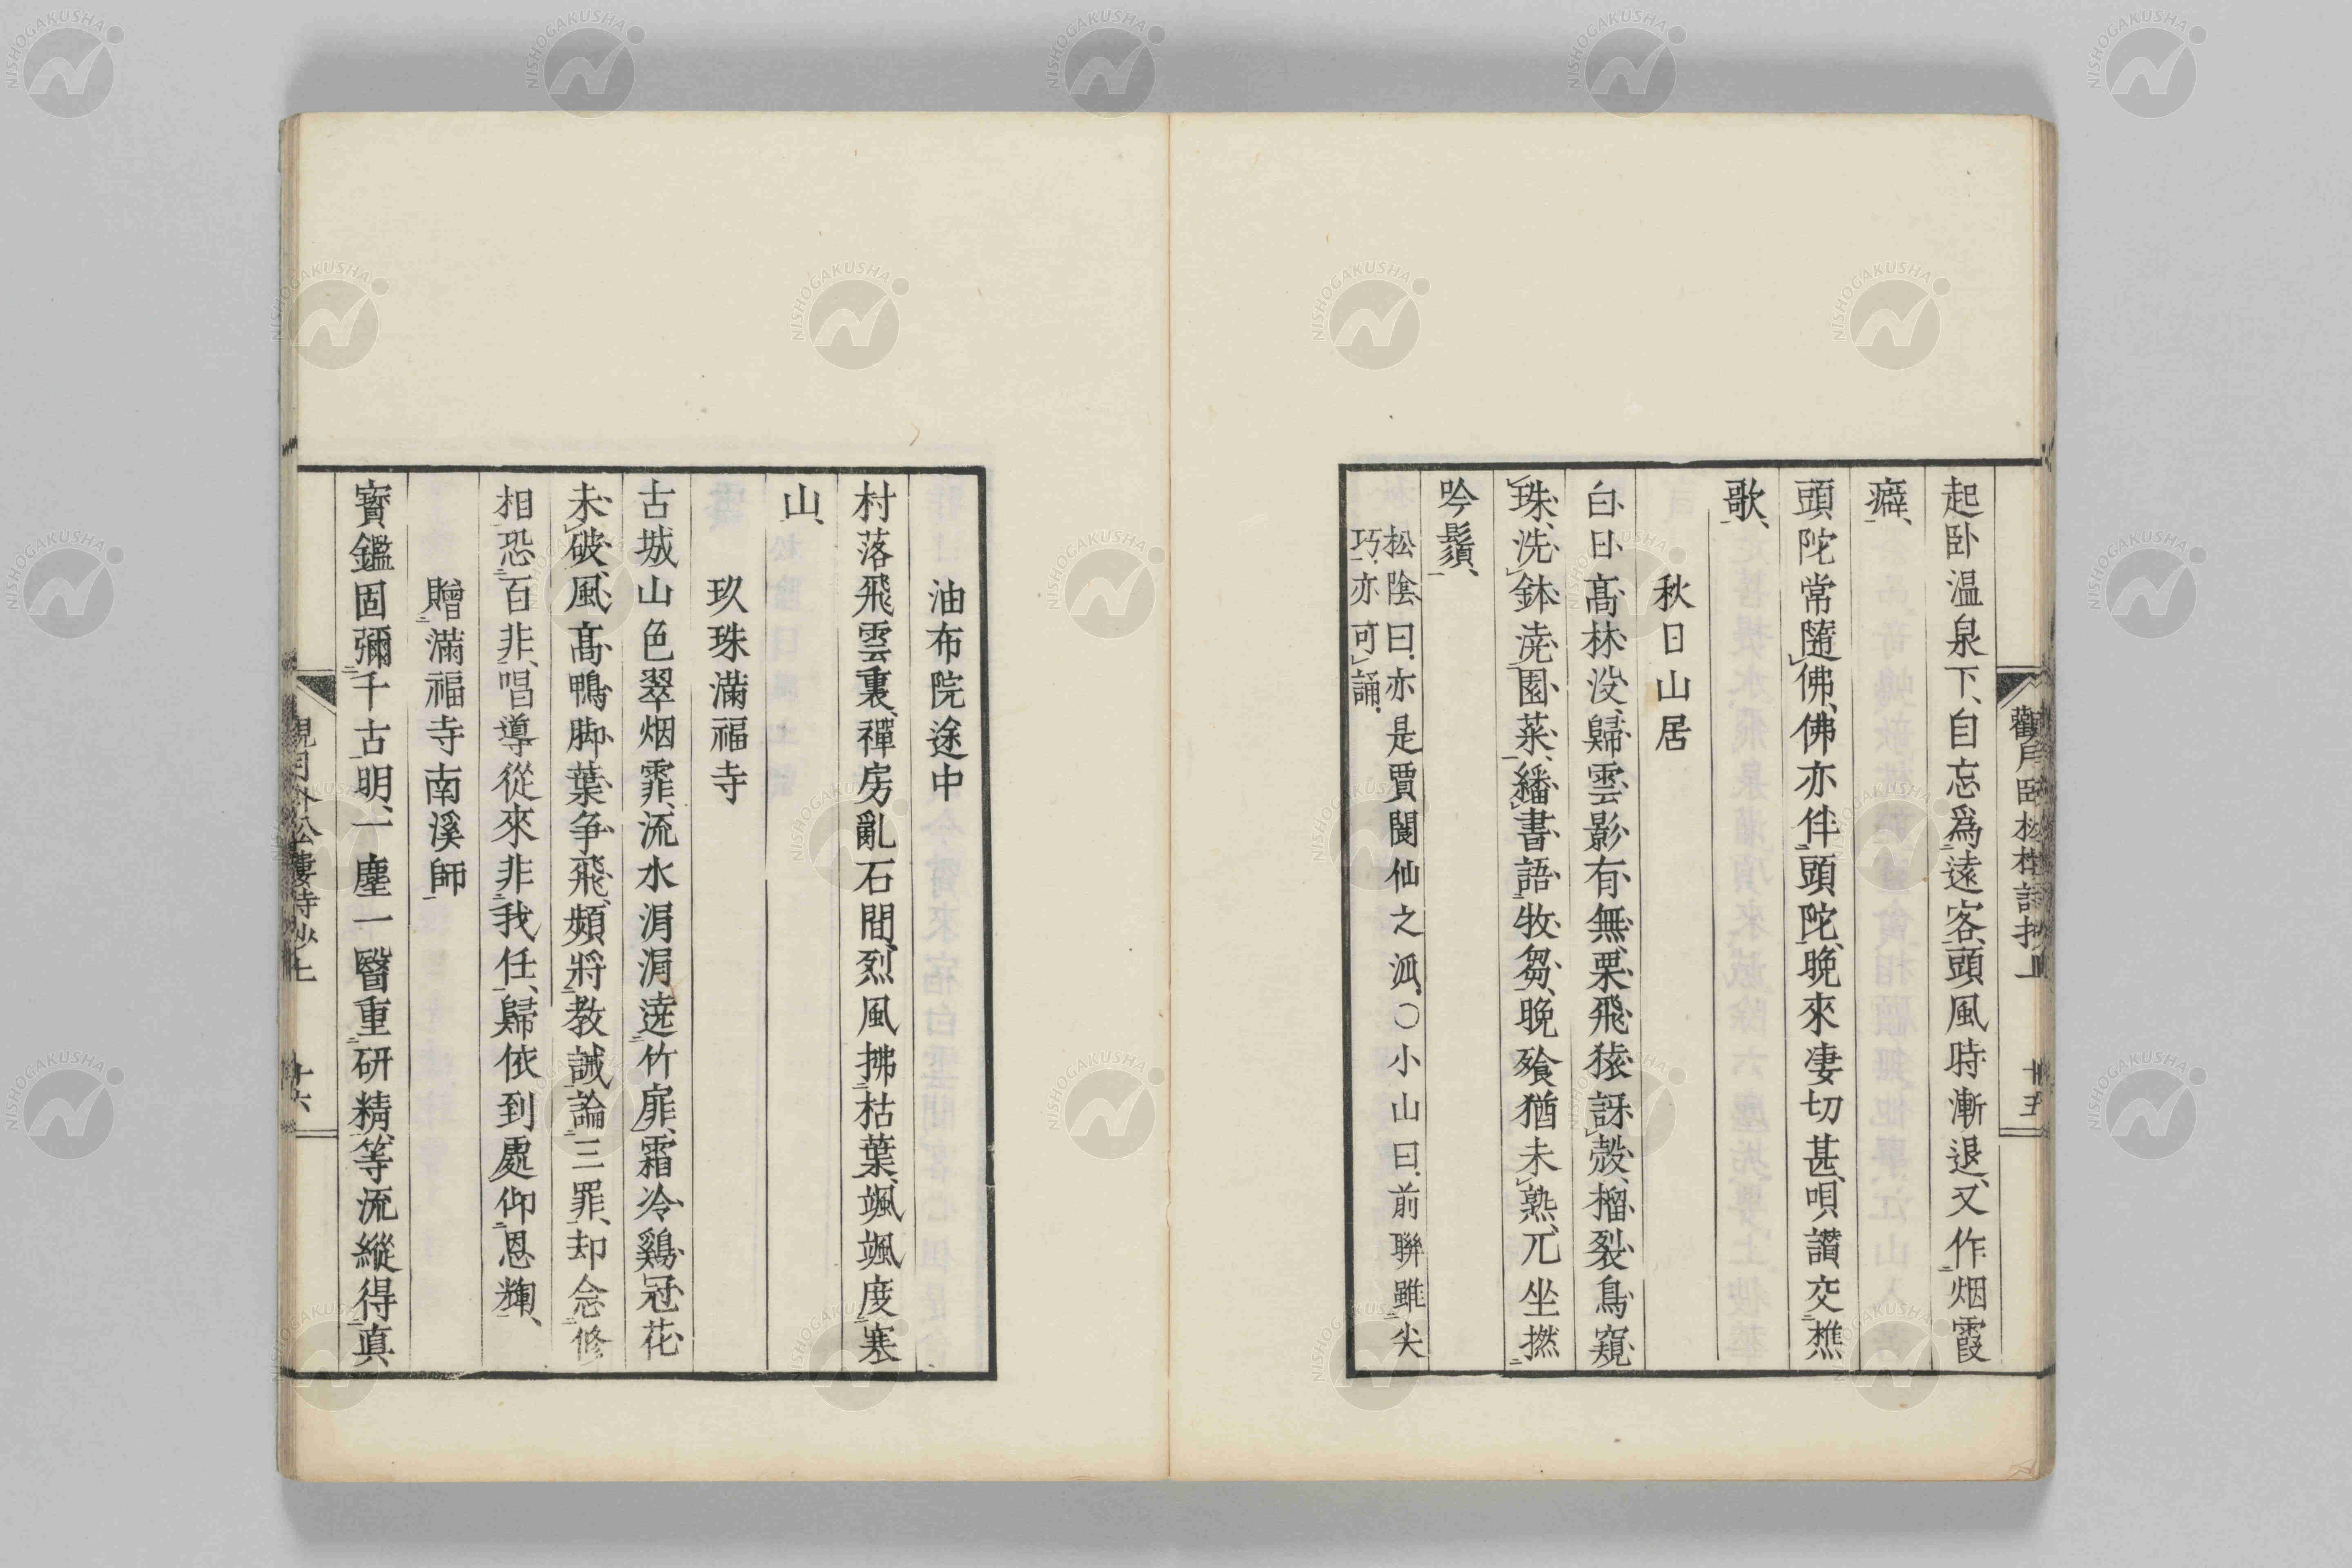 起卧温泉下、自忘爲遠客、頭風時漸退、又作烟霞
癖、
頭陀常隨佛、佛亦伴頭陀、晩來凄切甚、唄讚交樵
歌、
秋日山居
白日高林沒、歸雲影有無、栗飛猿訝殼、榴裂鳥窺
珠、洗鉢澆園菜、繙書語牧芻、晩飱猶未熟、兀坐撚
吟鬚、
松陰曰、亦是賈閬仙之派、〇小山曰、前聯雖尖
巧、亦可誦、
油布院途中
村落飛雲裏、禪房亂石間、烈風拂枯葉、颯颯度塞
山、
玖珠滿福寺
古城山色翠烟霏、流水涓涓遶竹扉、霜冷鷄冠花
未破、風高鴨脚葉爭飛、頻將教誡論三罪、却念修
相恐百非、唱導從來非我任、歸依到處仰恩輝、
贈滿福寺南溪師
寳鑑固彌千古明、一塵一翳重研精、等流縱得眞